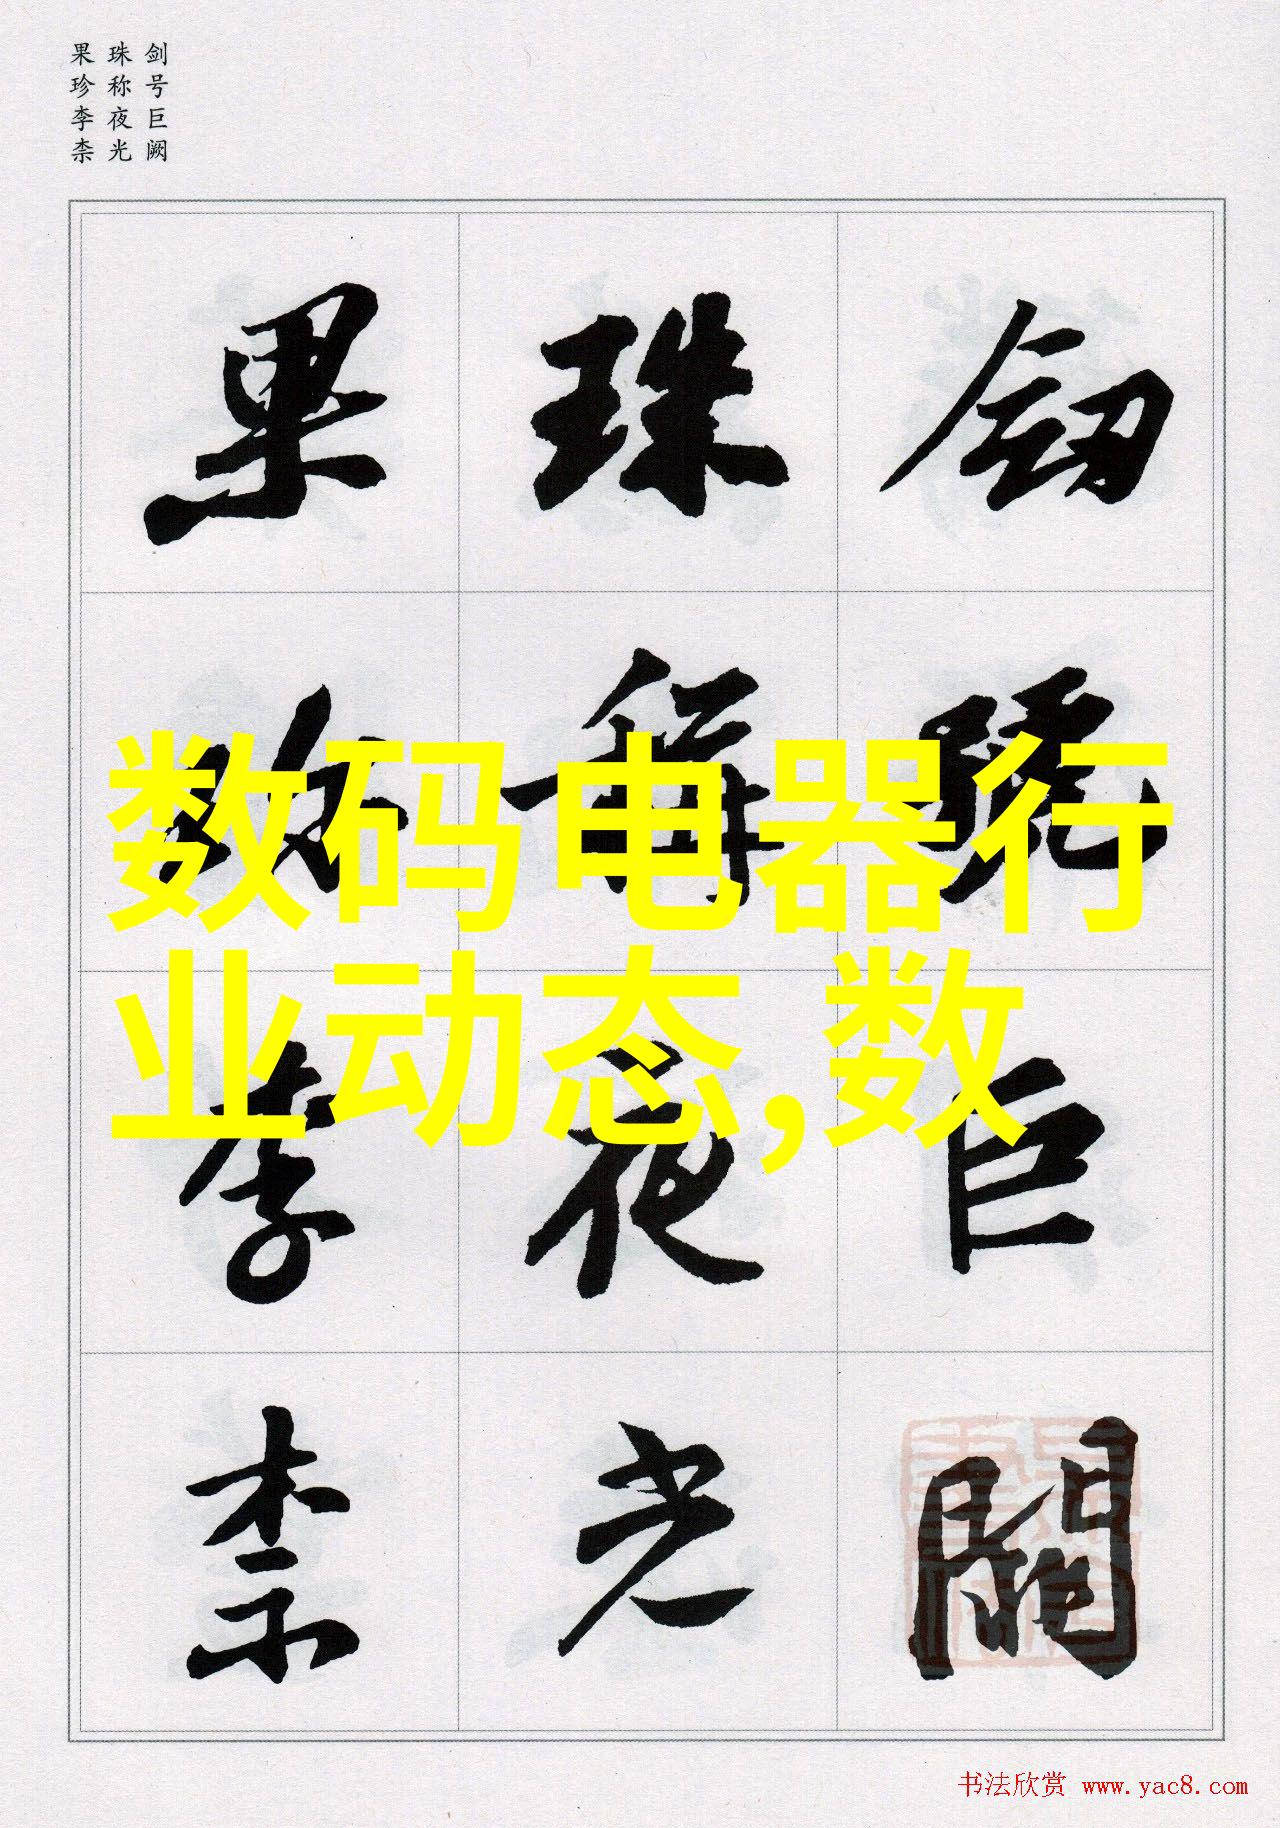 剑号巨阙
珠称夜光
果珍李柰
劒號巨闕
珠稱夜光
果珍李柰
数码电器行
业动态,数
书法欣赏 www.yac8.com